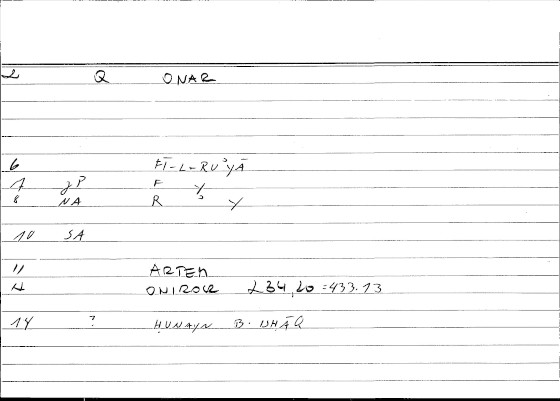 2 Q ONAR
6 FĪ-L-RUʾYĀ
7 gP F Y
8 NA R ʾ Y
10 SA
11 ARTEM
12 ONIROCR 234,20 = 433.13
14 ? ḤUNAYN B. ISḤĀQ